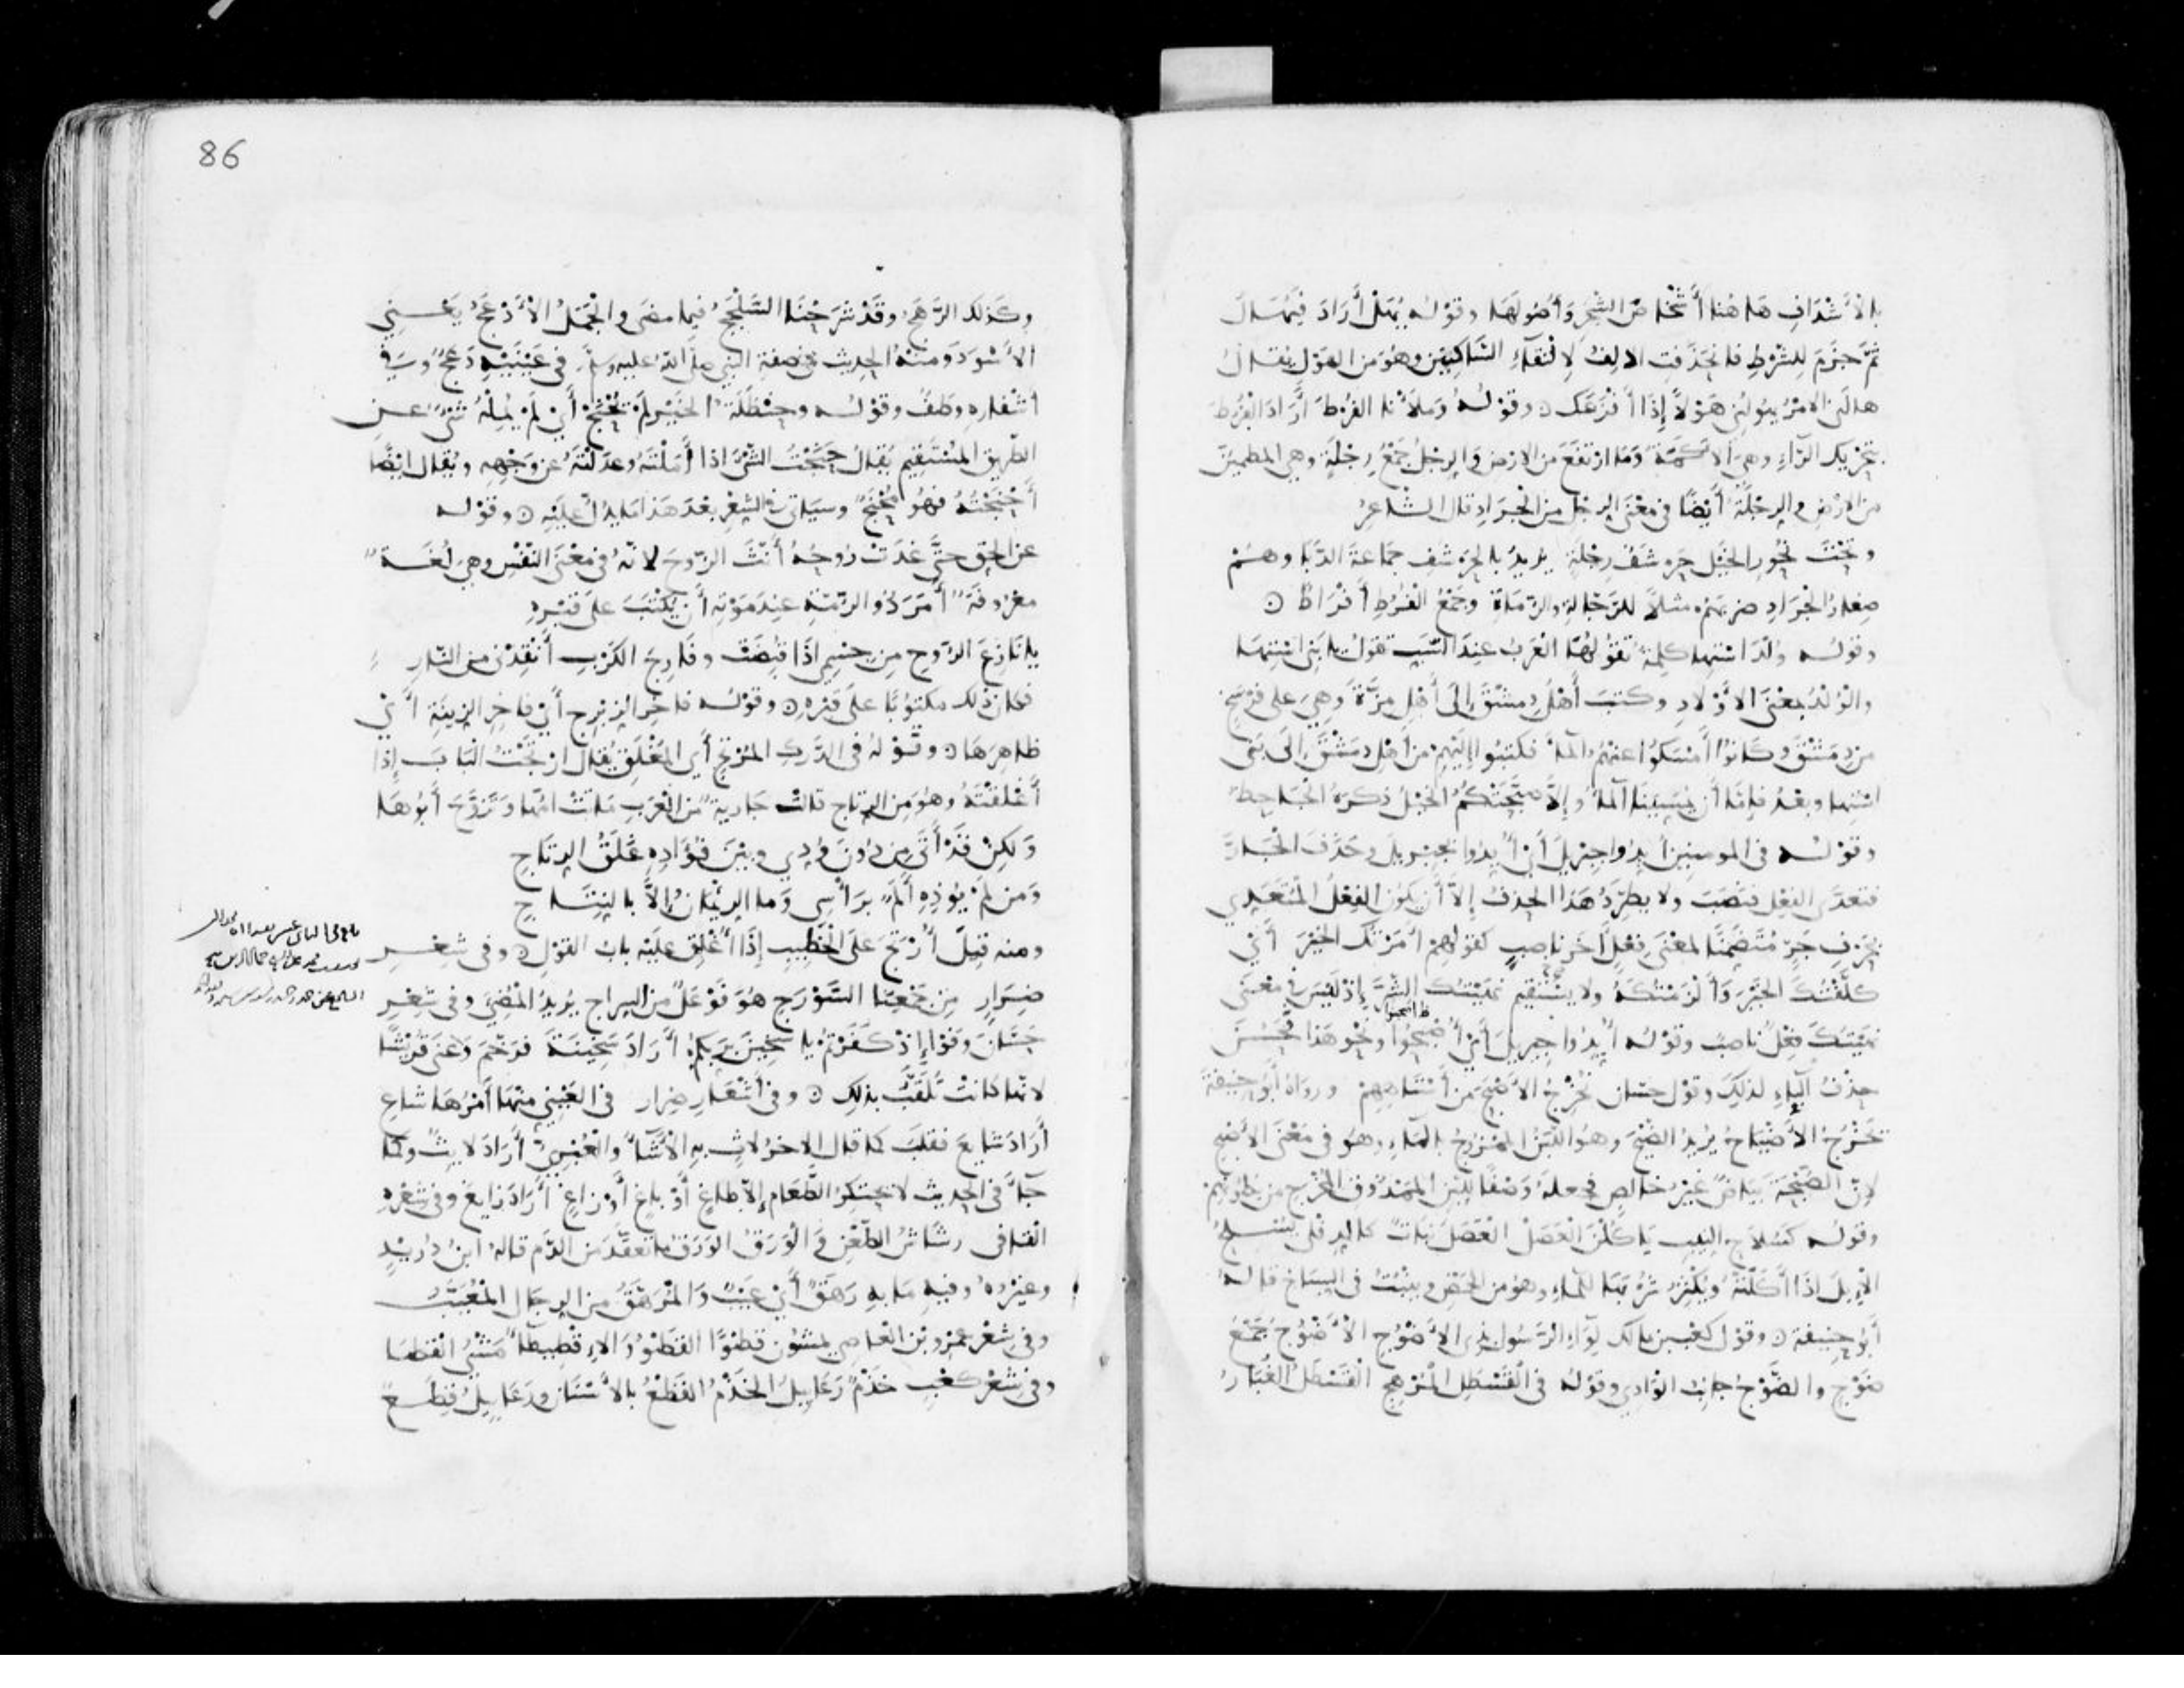 بِالْأَشْرَافِ هَاهُنَا أَشْخَاصَ الشَّجَرِ وَأُصُولَهَا وقَوْلُه يُهَلْ أَرَادَ فَيُهَالَ
ثُمَّ جَزَمَ لِلشَّرْطِ فانحَذَفَتِ الالِفُ لِالْتِقَاءِ السَّاكِنَيْنِ وهُوَ مِن الهَوْلِ يُقَالُ
هالَنِى الامْرُ يَهُولُنِى هَوْلاً إِذَا أَفْزَعَك ۞ وقَوْلُه وَمَلأْنا الفَرْطَ أَرَادَ الْفَرَطَ
بتحْرِيك الرَّاءِ وهِيَ الْأَكَمَةُ وَمَا ارْتفَعَ مِن الارْضِ وَالرِّجَلُ جَمْعُ رِجْلَةٍ وهِي المطمَئِنُّ
مِن الارْضِ والرِّجْلَةُ أَيْضًا فى مَعْنَى الرِّجْلِ مِن الْجَرَادِ قال الشَّاعِرُ
وتَحْتَ نُحُورِ الخَيْلِ حَرْشَفُ رِجْلَةٍ يُرِيدُ بالحَرْشَفِ جَمَاعَةَ الدَّبَا وهُمْ
صِغارُ الْجَرَادِ ضربَهُمْ مثلاً للرَّجَّالةِ والرُّمَاةِ وجَمْعُ الفَرَطِ أَفْرَاطٌ ۞
وقَوْلُه وُلْدَ اسْتِهَا كلِمةٌ تقُولُهَا الْعَرَبُ عِندَ السَّبِّ تقولُ يا بَنِى اسْتِهَا
والْوُلْدُ بمعْنَى الاوْلَادِ وكتبَ أَهْلُ دِمَشْقَ إِلَى أَهْلِ مِزَّةَ وَهِيَ على فَرْسَخٍ
مِن دِمَشْقَ وكَانُوا أَمْسَكُوا عنهُمُ الْمَاءَ فكتبُوا إِلَيْهِمْ مِن أَهْلِ دِمَشْقَ إِلَى بَنِى
اسْتِهَا وبعْدُ فإِمَّا أَن يُمَسِّيَنَا الْمَاءُ وإِلَّا صَبَّحَتْكُمُ الخَيْلُ ذكرَهُ الْجَاحِظُ
وقَوْلُه فى المومنين أَيدُوا جِبْرِيلَ أَىْ أُيِّدُوا بجِبْرِيلَ وحَذَفَ الْجَارَّ
فتعدَّى الفِعْلُ فنَصَبَ ولا يطَّرِدُ هَذَا الحذفُ إِلَّا أَن يكُونَ الفِعْلُ الْمُتَعَدِّى
بحَرْفِ جَرٍّ مُتَضَمِّنًا لمعْنَى فِعْلٍ آخَر ناصِبٍ كقوْلِهِمْ أَمَرْتُكَ الخَيْرَ أَىْ
كلَّفْتُكَ الْخَيْرَ وَأَلْزَمْتُكَهُ ولا يسْتَقِيم نَهَيْتُكَ الشَّرَّ إِذْ لَيْسَ فى مَعْنَى
نَهَيْتُكَ فِعْلٌ ناصِبٌ وقَوْلُه أُيِّدُوا جِبرِيلَ أَىْ أُصْحِبُوا ونَحْو هَذَا فَحَسُنَ
حَذْفُ الْبَاءِ لذلِكَ وقَوْل حسّان تُخْرِجُ الاضْيَحَ مِن أَسْتَاهِهِمْ ورواهُ أَبُو حَنِيفةَ
تخْرُجُ الأَضْيَاحُ يُرِيدُ الضَّيْحَ وهُوَ اللَّبَنُ الْمَمْزُوجُ بالْمَاءِ وهُو فى مَعْنَى الأَصْبَحِ
لِانَّ الصُّبْحَةَ بَيَاضٌ غيرُ خالِصٍ فجعلهُ وَصْفًا للَّبَنِ الْمَمْذُوقِ الْمُخْرَجِ مِن بُطُونِهِمْ
وقوْلُه كَسُلَاحِ النِّيبِ يَأكُلْنَ الْعَصَلْ الْعَصَلُ نَباتٌ كالدِفْلَى يُسْلِحُ
الْإِبِلَ اذَا أَكَلَتْهُ ويُكْثِرُ شُرْبَهَا للْمَاءِ وهُوَ مِن الحَمْضِ وينْبُتُ فى السِّبَاخِ قَالَهُ
أبُو حنِيفة ۞ وقَوْل كعْبِ بن مالك لِوَاءِ الرَّسُولِ بذِى الأَضْوُجِ الْأَضْوُجُ جَمْعُ
ضَوْجٍ والضَّوْجُ جانِبُ الْوادِى وقَوْله فى الْقَسْطَلِ الْمُرْهِجِ الْقَسْطَلُ الغُبَارُ
86
وكَذلك الرَّهَجُ وقَدْ شَرَحْنَا السَّلْجَجَ فيما مضى والْجَمَلُ الْأَدْعَجُ يَعْنِى
الاسْوَدَ ومِنْهُ الحديث فى صِفة النبى صلى الله عليه وسلم فى عَيْنَيْهِ دَعَجٌ وَفى
أشفارِهِ وطَفٌ وقوْلُه وحنْظَلَةَ الخَيْرِ لَمْ يُحْنَجْ أَىْ لَمْ يُمِلْهُ شَىْءٌ عَن
الطّرِيق المُسْتقِيم يُقالُ حَنَجْتُ الشَّىْءَ اذا أَمَلْتَهُ وعدَلْتَهُ عَن وَجْهِهِ ويُقال ايْضًا
أَحْنَجْتُهُ فهُو مُحْنَجٌ وسيَاتى فى الشِّعْرِ بَعْدَ هَذَا مَا يدُلُّ عليْهِ ۞ وقَوْلُه
عن الحَقِّ حتَّى غدَتْ رُوحُهُ أَنَّثَ الرُّوحَ لانهُ فى مَعْنَى النّفْسِ وهِيَ لُغَةٌ
معْرُوفَةٌ أَمَرَ ذُو الرُّمَّةِ عِندَ مَوْتِهِ أَن يُكْتَبَ علَى قَبْرِهِ
يا نَازِعَ الرُّوحِ مِن جِسْمِى اذَا قُبِضَتْ وفَارِجَ الكَرْبِ أَنْقِذْنِى مِنَ النّارِ
فكانَ ذلك مكتوُبًا على قَبْرِهِ ۞ وقوْلُه فاخِرِ الزِبْرِجِ أَىْ فاخِرِ الزِينَةِ أَىْ
ظاهِرَهَا ۞ وقَوْلُهُ فى الدَّرَكِ المُرْتَجِ أَىِ المُغْلَقِ يُقَال ارْتَجْتُ الْبَابَ إِذَا
أَغْلَقْتَهُ وهُوَ مِن الرِّتاجِ قالَتْ جَاريةٌ مِن الْعَرَبِ مَاتَتْ امُّهَا وتَزَوَّجَ أَبُوهَا
وَلكِنْ قَدْ أَتَى مِن دُونَ وُدِّى وبَيْنَ فُؤَادِهِ غَلَقُ الرِتَاجِ
وَمَن لَمْ يُوْذِهِ أَلَمٌ برَأْسِى وَما الرِئْمَانُ إلَّا بالنِتَاجِ
ومِنه قِيلَ أُرْتِجَ علَى الْخَطِيبِ إِذَا أُغْلِقَ علَيْهِ بابُ القَوْلِ ۞ وفى شِعْرِ
ضِرَارٍ مِن جَمْعِنَا السَّوْرَجِ هُوَ فَوْعَلٌ مِن السِراجِ يُرِيدُ الْمُضِىءَ وفى شِعْرِ
حَسَّانَ وَفَوْا إِذْ كَفَرْتُمْ يا سَخِينَ بِرَبِّكُمْ أَرَادَ سَخِينَةَ فرَخَّمَ وَعَنَى قُرَيْشًا
لانها كانَتْ تُلَقَّبُ بذلِك ۞ وفى أشْعَارِ ضِرار فى الْعَيْنِ مِنْهَا أَمْرُهَا شاعِ
أَرَادَ شَايعَ فقلَبَ كما قال الاخرُ لاثٍ بهِ الْأَشَاءُ والْعُبْرِىُّ أَرَادَ لَايثٌ وكَمَا
جَاءَ فى الحدِيث لا يَحْتَكِرُ الطَّعَامَ إِلَّا طاغٍ أَوْ باغٍ أَوْ زاغٍ أَرَادَ زايغٌ وفى شِعْرِهِ
القافى رشَاشُ الطَّعْنِ وَالْوَرَقُ الوَرَقُ ما تعقَّدَ مِن الدَّمِ قالهُ ابْنُ دُرَيْدٍ
وغيْرُهُ وفيهِ مَا بهِ رَهَقٌ أَىْ عَيْبٌ وَالْمُرَهَّقُ مِن الرِجَالِ الْمُعَيَّبُ
وفى شِعْرِ عَمْرِو بْن الْعَاصِى يمشُون قَطْوًا القَطْوُ وَالاقْطِيطَاءُ مَشْىُ الْقَطَا
وفى شِعْرِ كعْبٍ خَذْمٌ رَعَابِيلُ الخَذْمُ القَطْعُ بالأَسْنَانِ ورَعَابِيلُ قِطَعٌ